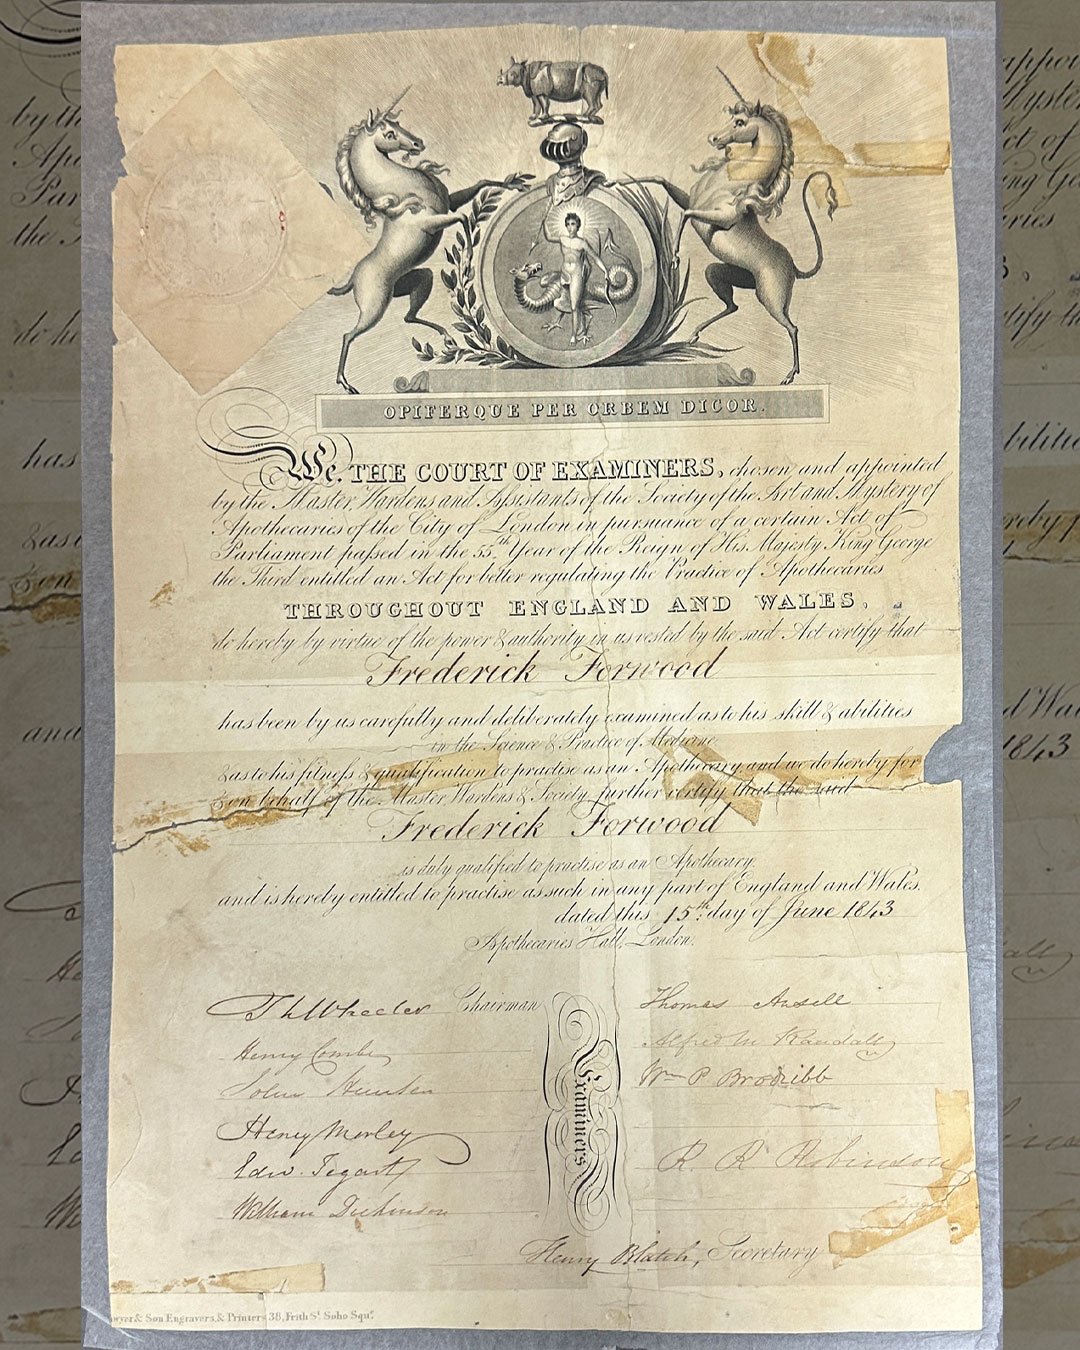 OPIFERQUE PER ORBEM DICOR.
We, THE COURT OF EXAMINERS, chosen and appointed
by the Master, Wardens and Assistants of the Society of the Art and Mystery of
Apothecaries of the City of London in pursuance of a certain Act of
Parliament passed in the 55th Year of the Reign of His Majesty King George
the Third entitled an Act for better regulating the Practice of Apothecaries
THROUGHOUT ENGLAND AND WALES,
do hereby by virtue of the power & authority in us vested by the said Act certify that
Frederick Forwood
has been by us carefully and deliberately examined as to his skill & abilities
in the Science & Practice of Medicine
& as to his fitness & qualification to practise as an Apothecary and we do hereby for
& on behalf of the Master Wardens & Society further certify that the said
Frederick Forwood
is duly qualified to practise as an Apothecary,
and is hereby entitled to practise as such in any part of England and Wales.
dated this 15th day of June 1843
Apothecaries Hall, London.
Wheeler Chairman
Henry Combe
John Hunter
Henry Morley
Edw. Tegart
William Dickinson
Examiners
Thomas Ansell
Alfred M Randall
Wm P Brodribb
R. R Robinson
Henry Blatch, Secretary
& Son Engravers, & Printers 38, Frith St Soho Sqre.